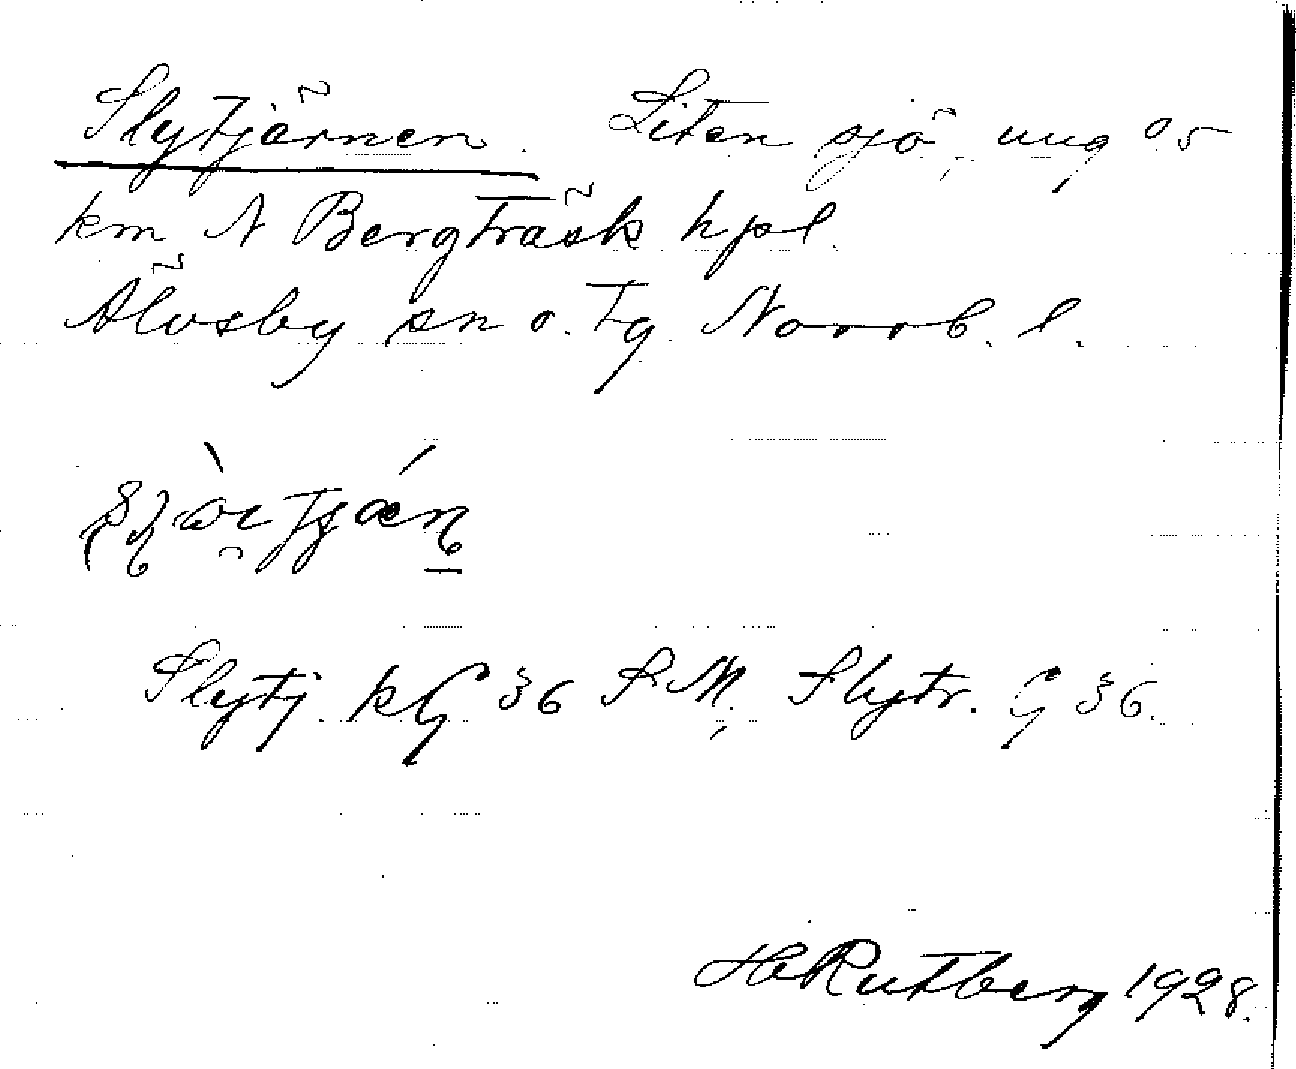 Slytjärnen. Liten sjö, ung 05
km N Bergträsk hpl.
Älvsby sn o. tg Norrb. l.
Slytj. kG 36 S.M. Slytr. G 36.
H Rutberg 1928.